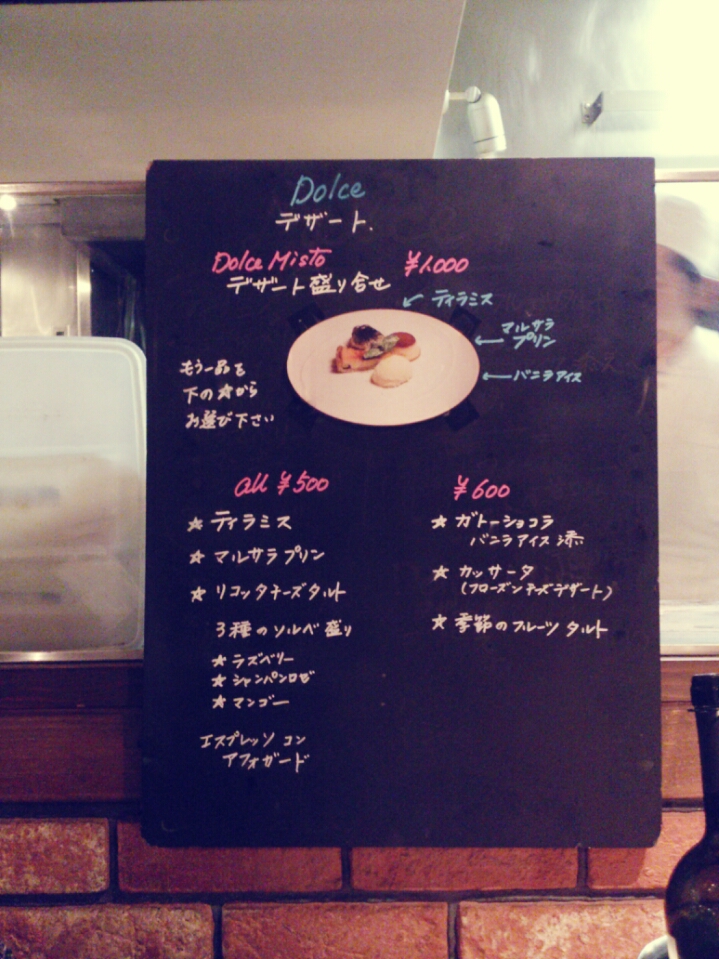 Dolce
デザート.
Dolce Misto ¥1.000
デザート盛り合せ
ティラミス
マルサラ
プリン
バニラアイス
もう一品を
下の☆から
お選び下さい
all ¥500
☆ ティラミス
☆ マルサラプリン
☆ リコッタチーズタルト
3種のソルベ盛り
☆ ラズベリー
☆ シャンパンロゼ
☆ マンゴー
エスプレッソ コン
アフォガード
¥600
☆ ガトーショコラ
バニラアイス添
☆ カッサータ
(フローズンチーズデザート)
☆ 季節のフルーツタルト